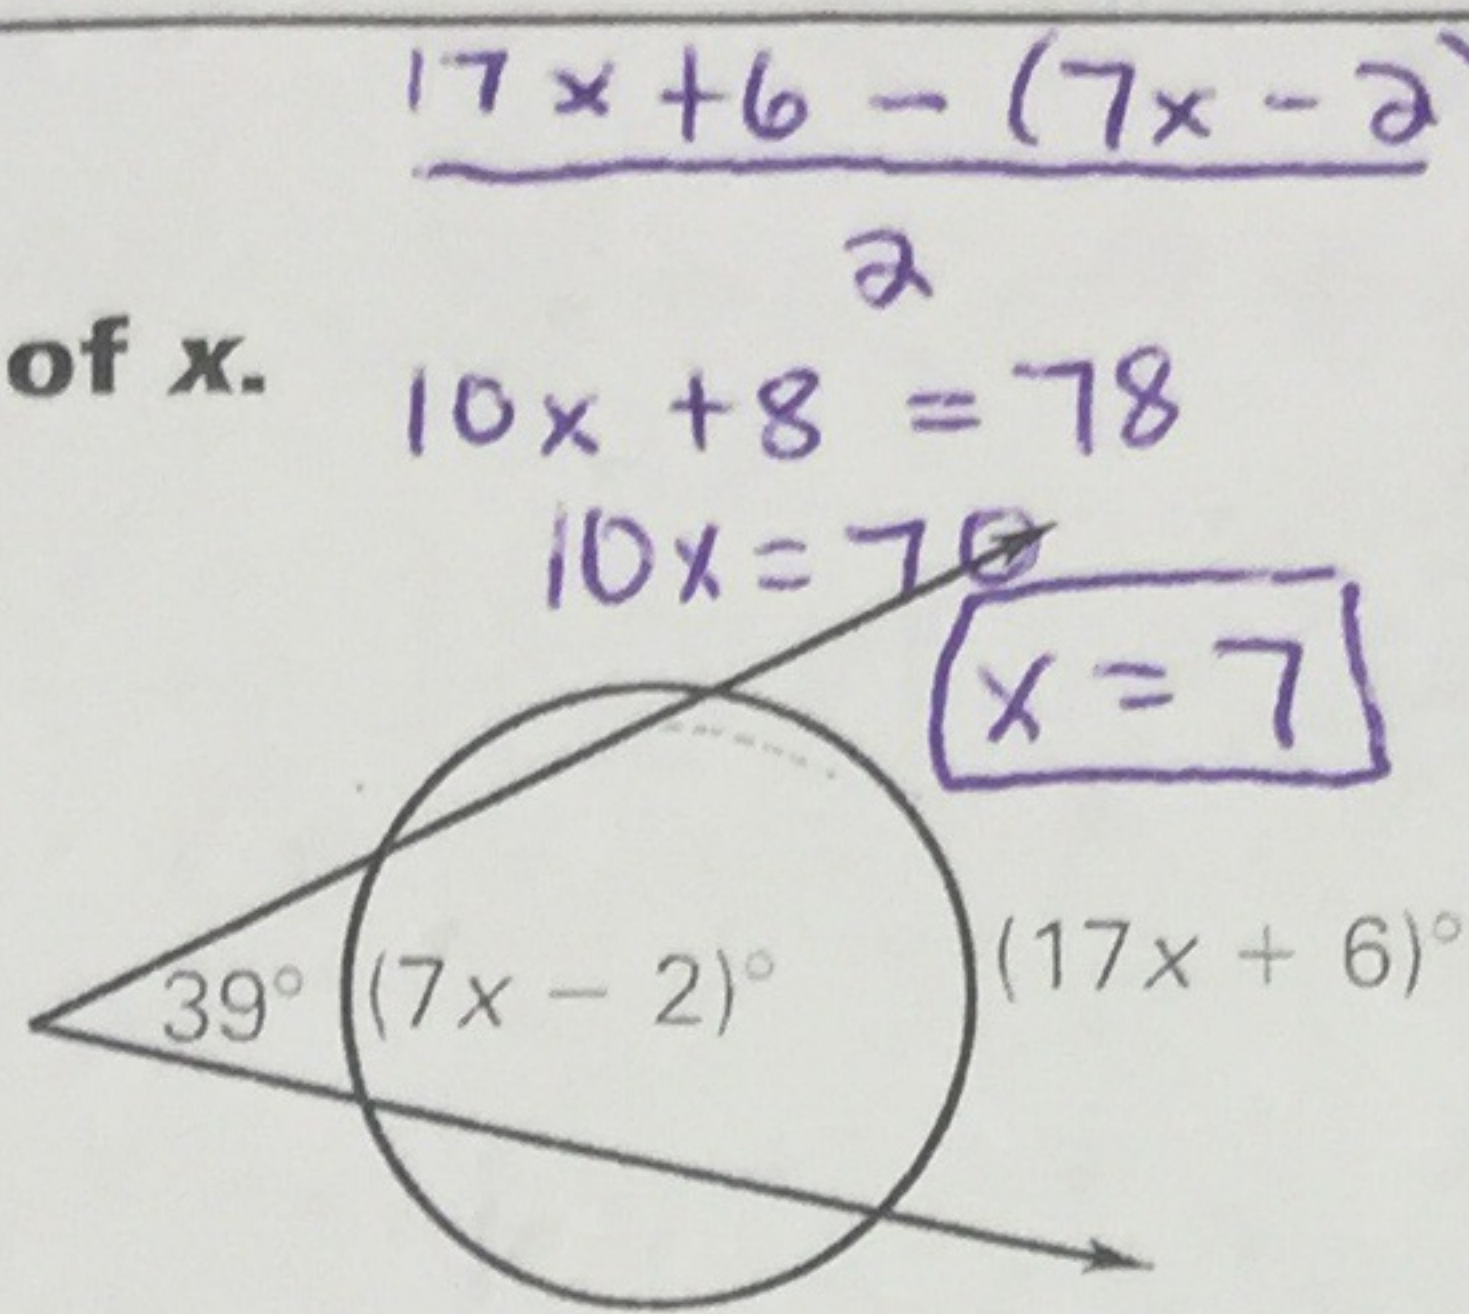 17x + 6 - (7x - 2)
2
of x.
10x + 8 = 78
10x = 70
x = 7
39° (7x − 2)° (17x + 6)°